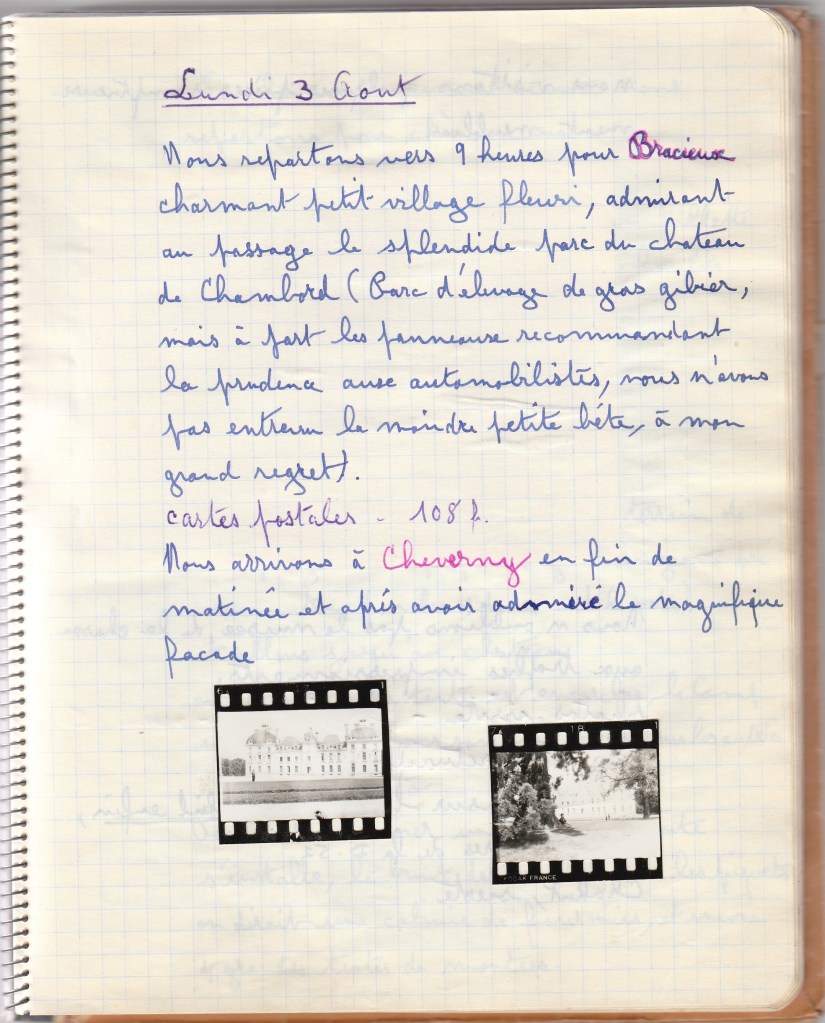 Lundi 3 Aout
Nous repartons vers 9 heures pour Bracieux
charmant petit village fleuri, admirant
au passage le splendide parc du chateau
de Chambord (Parc d'élevage de gros gibier,
mais à part les panneaux recommandant
la prudence aux automobilistes, nous n'avons
pas entrevu la moindre petite bête, à mon
grand regret).
cartes postales - 108 f.
Nous arrivons à Cheverny en fin de
matinée et aprés avoir admiré le magnifique
facade
18
KODAK FRANCE